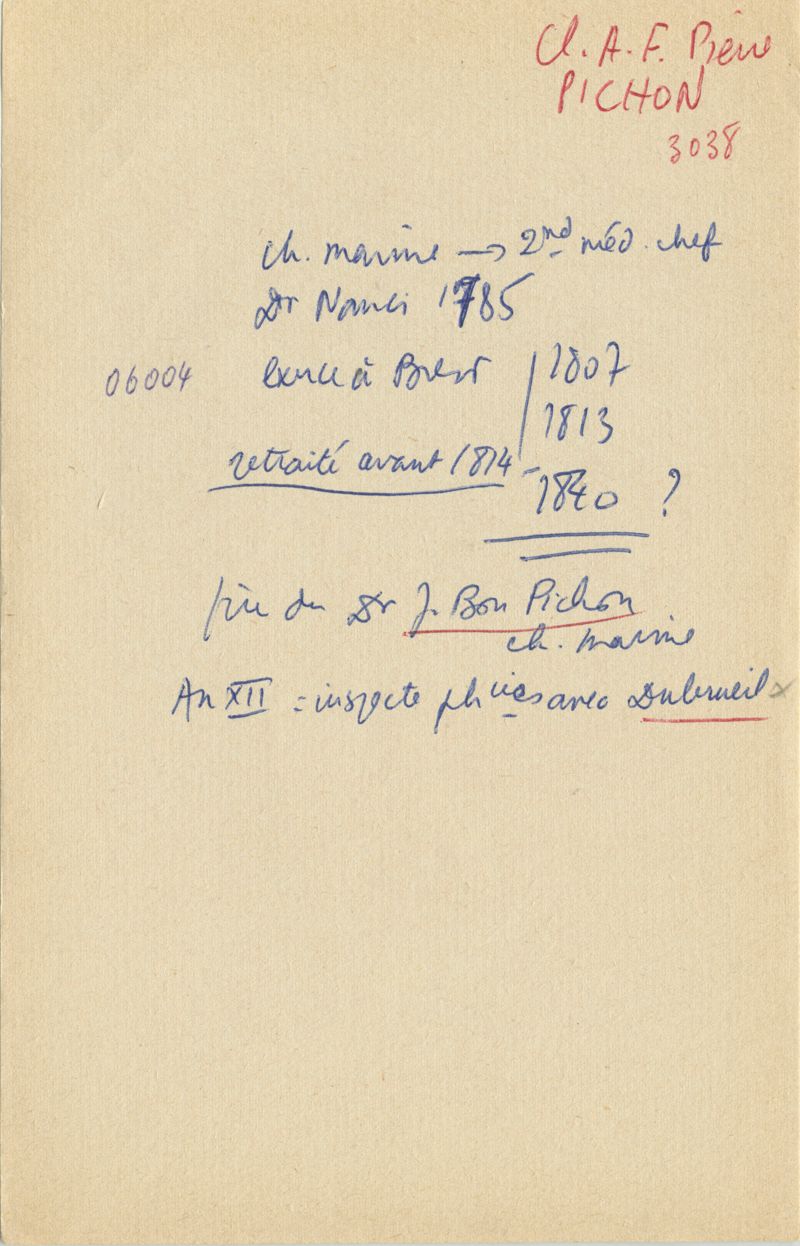 Cl. A. F. Pierre
PICHON
3038
ch. marine → 2nd méd. chef
Dr Nanci 1785
06004
exerce à Brest 1807
1813
retraité avant 1814
1840 ?
du Dr J. Bon Pichon
ch. marine
An XII = inspecte phcies avec Dubreuil x